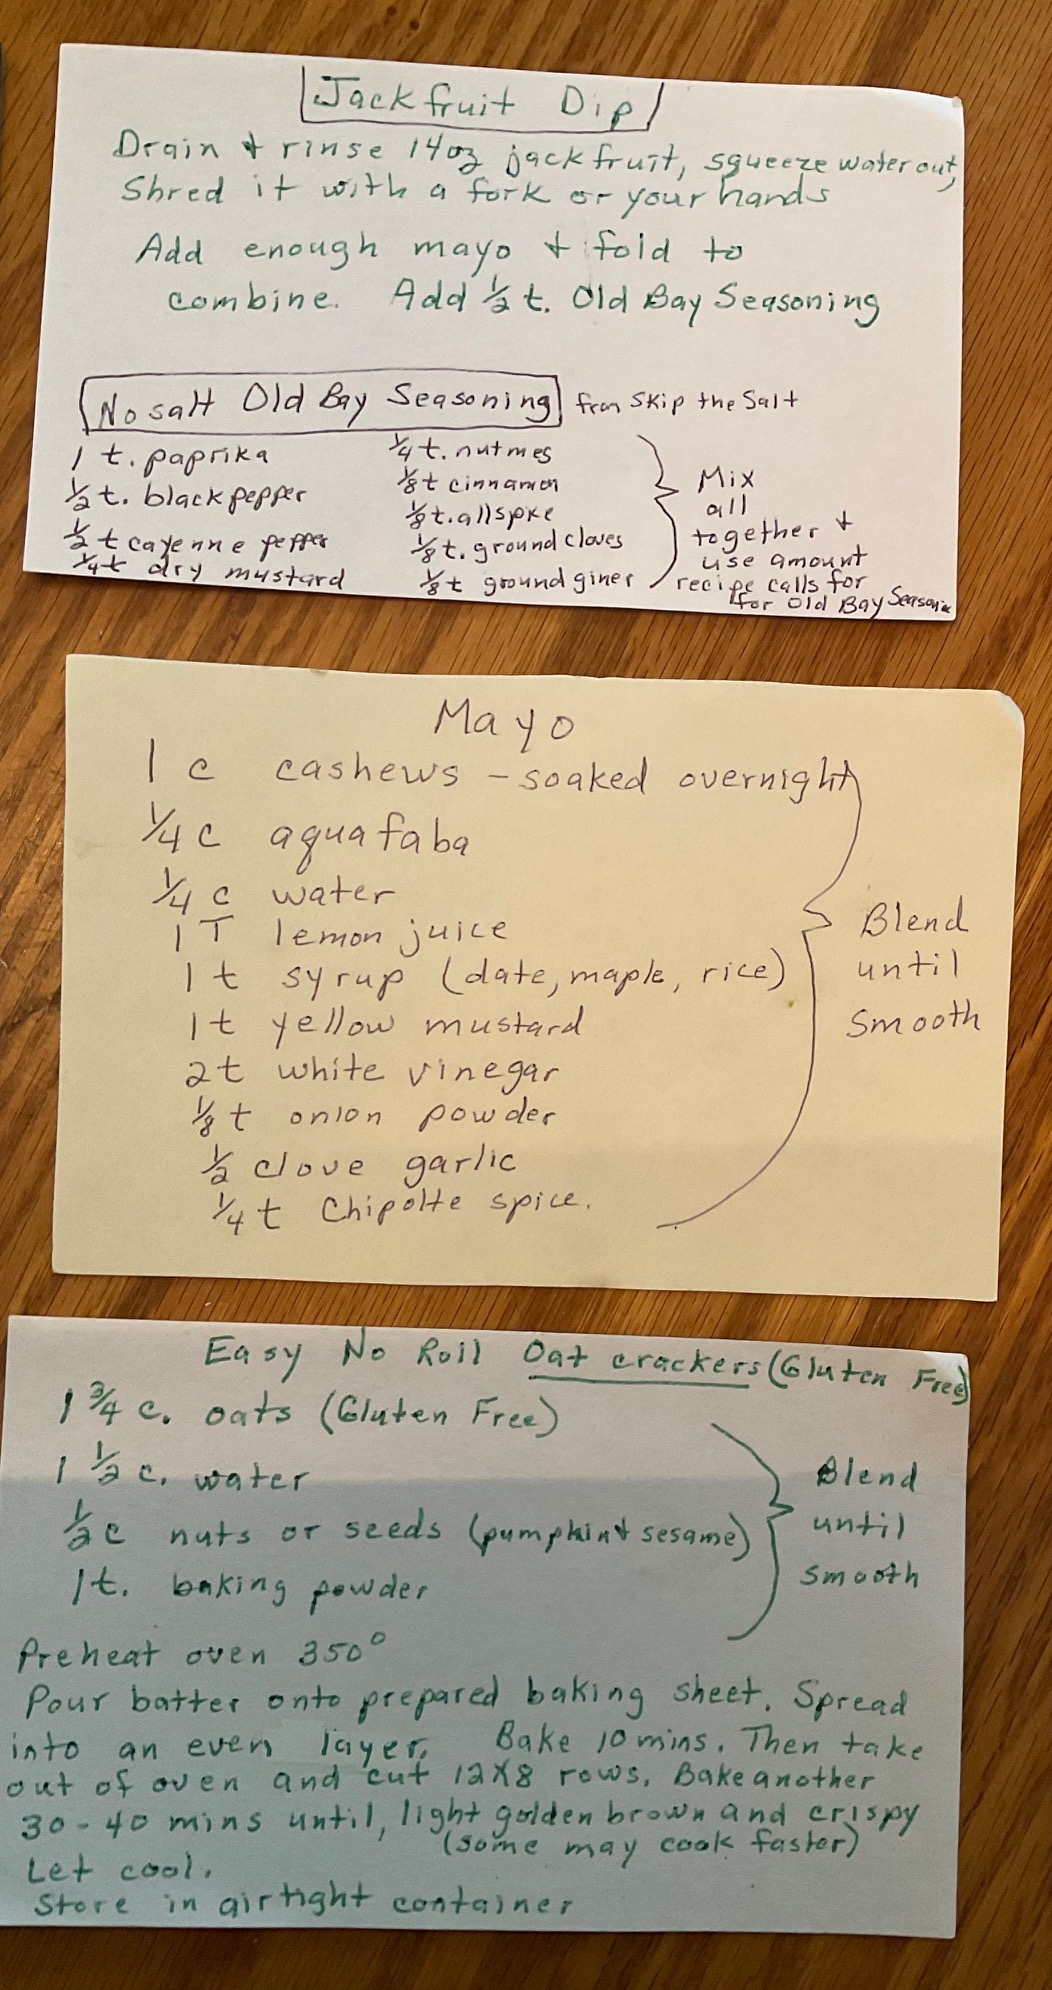 Jackfruit Dip
Drain + rinse 14oz jackfruit, squeeze water out,
Shred it with a fork or your hands
Add enough mayo + fold to
combine. Add 1/2 t. Old Bay Seasoning
No salt Old Bay Seasoning from Skip the Salt
1 t. paprika
1/2 t. black pepper
1/2 t cayenne pepper
1/4 t dry mustard
1/4 t. nutmeg
1/8 t cinnamon
1/8 t. allspice
1/8 t. ground cloves
1/8 t ground giner
Mix
all
together +
use amount
recipe calls for
for Old Bay Seasonin
Mayo
1 c cashews - soaked overnight
1/4 c aquafaba
1/4 c water
1 T lemon juice
1 t syrup (date, maple, rice)
1 t yellow mustard
2 t white vinegar
1/8 t onion powder
1/2 clove garlic
1/4 t Chipolte spice.
Blend
until
smooth
Easy No Roll Oat crackers (Gluten Free)
1 3/4 c. oats (Gluten Free)
1 1/2 c. water
1/2 c nuts or seeds (pumpkin + sesame)
1 t. baking powder
Blend
until
smooth
Preheat oven 350°
Pour batter onto prepared baking sheet. Spread
into an even layer. Bake 10 mins. Then take
out of oven and cut 12x8 rows. Bake another
30-40 mins until, light golden brown and crispy
(some may cook faster)
Let cool.
Store in airtight container